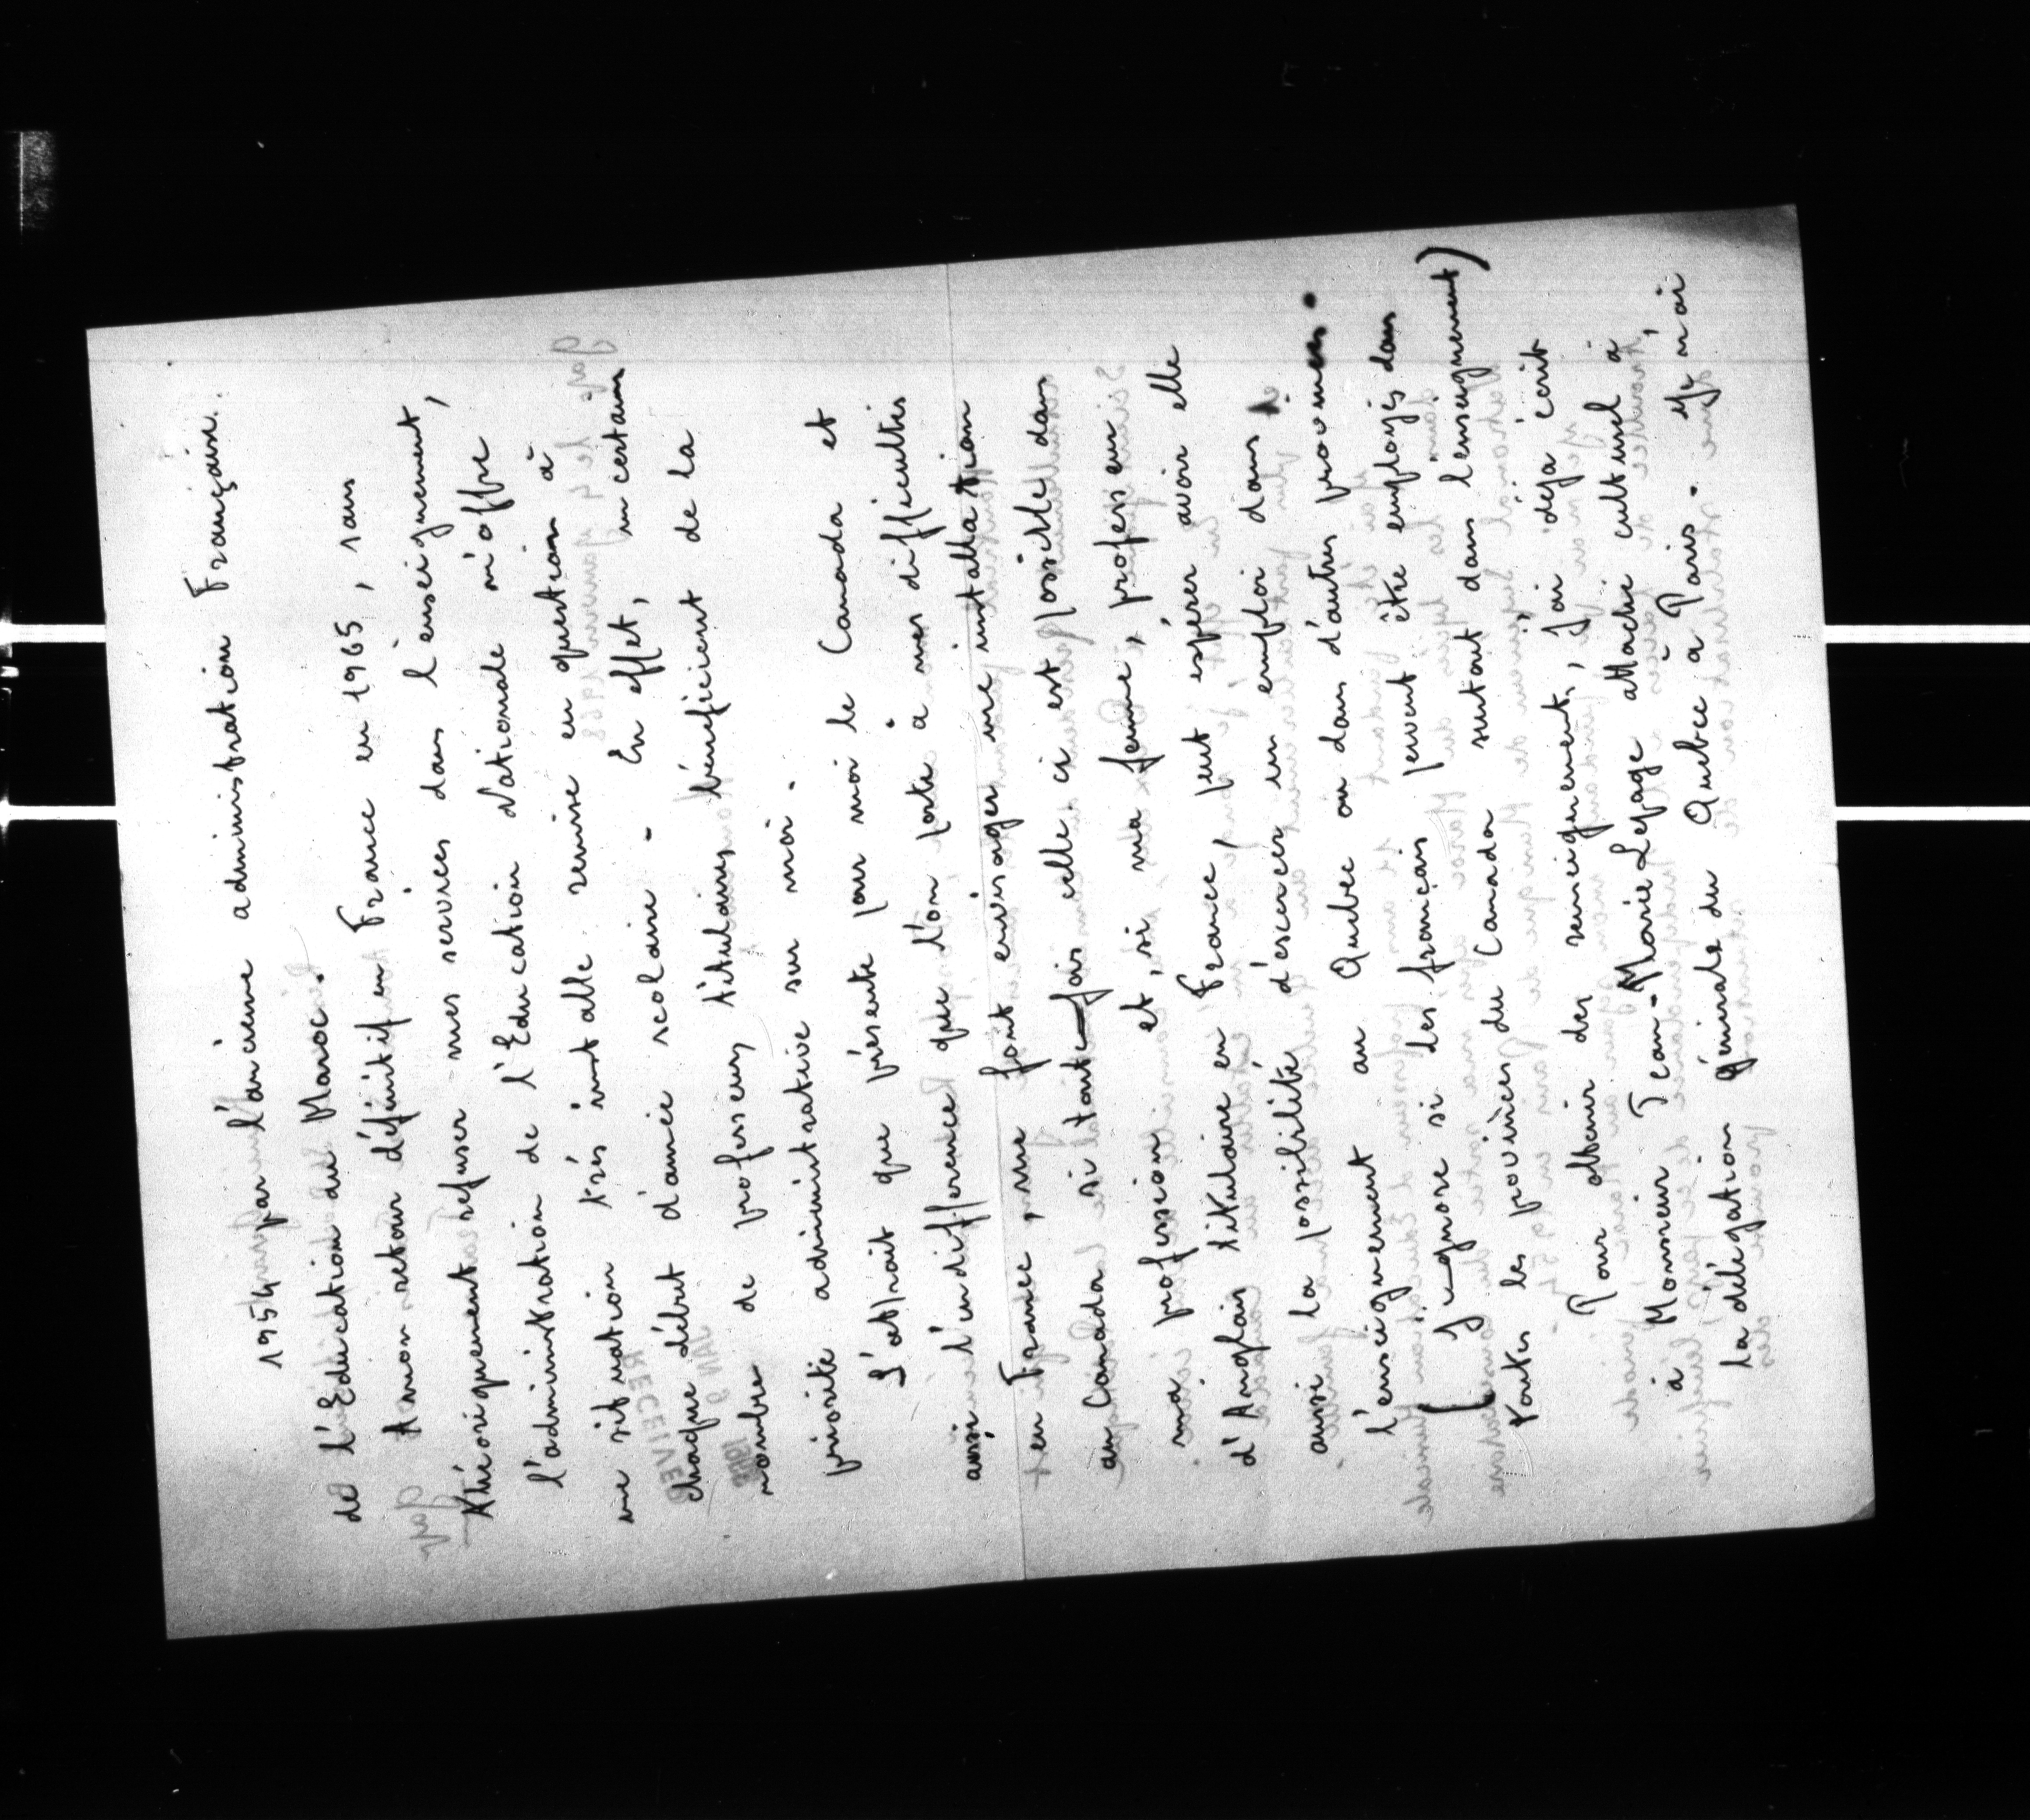 1954 par l'ancienne administration Française.
de l'Education du Maroc.
A mon retour définitif en France en 1965, sans
théoriquement refuser mes services dans l'enseignement,
l'administration de l'Education Nationale m'offre
une situation très instable remise en question à
chaque début d'année scolaire - En effet, un certain
nombre de professeurs titulaires bénéficient de la
priorité administrative sur moi.
L'attrait que présente pour moi le Canada et
aussi l'indifférence que l'on porte à mes difficultés
en France, me font envisager une installation
au Canada si toute-fois celle ci est possible dans
ma profession et, si ma femme, professeur
d'Anglais titulaire en France, peut espérer avoir elle
aussi la possibilité d'exercer un emploi dans
l'enseignement au Québec ou dans d'autres provinces.
( J'ignore si des français peuvent être employés dans
toutes les provinces du Canada surtout dans l'enseignement)
Pour obtenir des renseignements, j'ai déjà écrit
à Monsieur Jean-Marie Lepage attaché culturel à
la délégation générale du Québec à Paris. Je n'ai
JAN 9 1968
RECEIVED